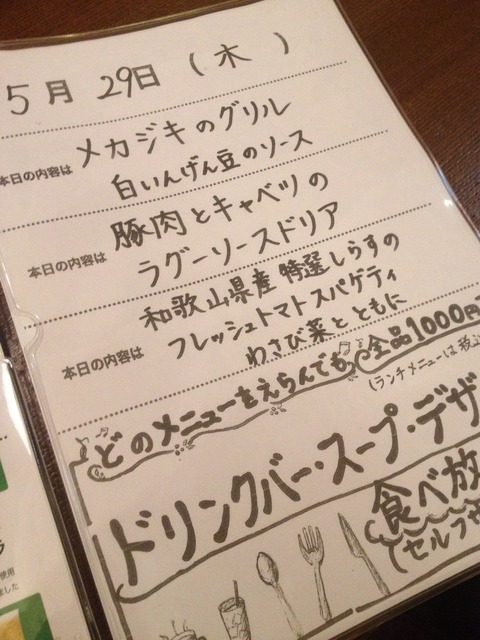 5月29日（木）
本日の内容は
メカジキのグリル
白いんげん豆のソース
本日の内容は
豚肉とキャベツの
ラグーソースドリア
本日の内容は
和歌山県産特選しらすの
フレッシュトマトスパゲティ
わさび菜とともに
どのメニューをえらんでも♪全品1000円
（ランチメニューは税込
ドリンクバー・スープ・デザ
食べ放
（セルフサ
ラ
使用
ました